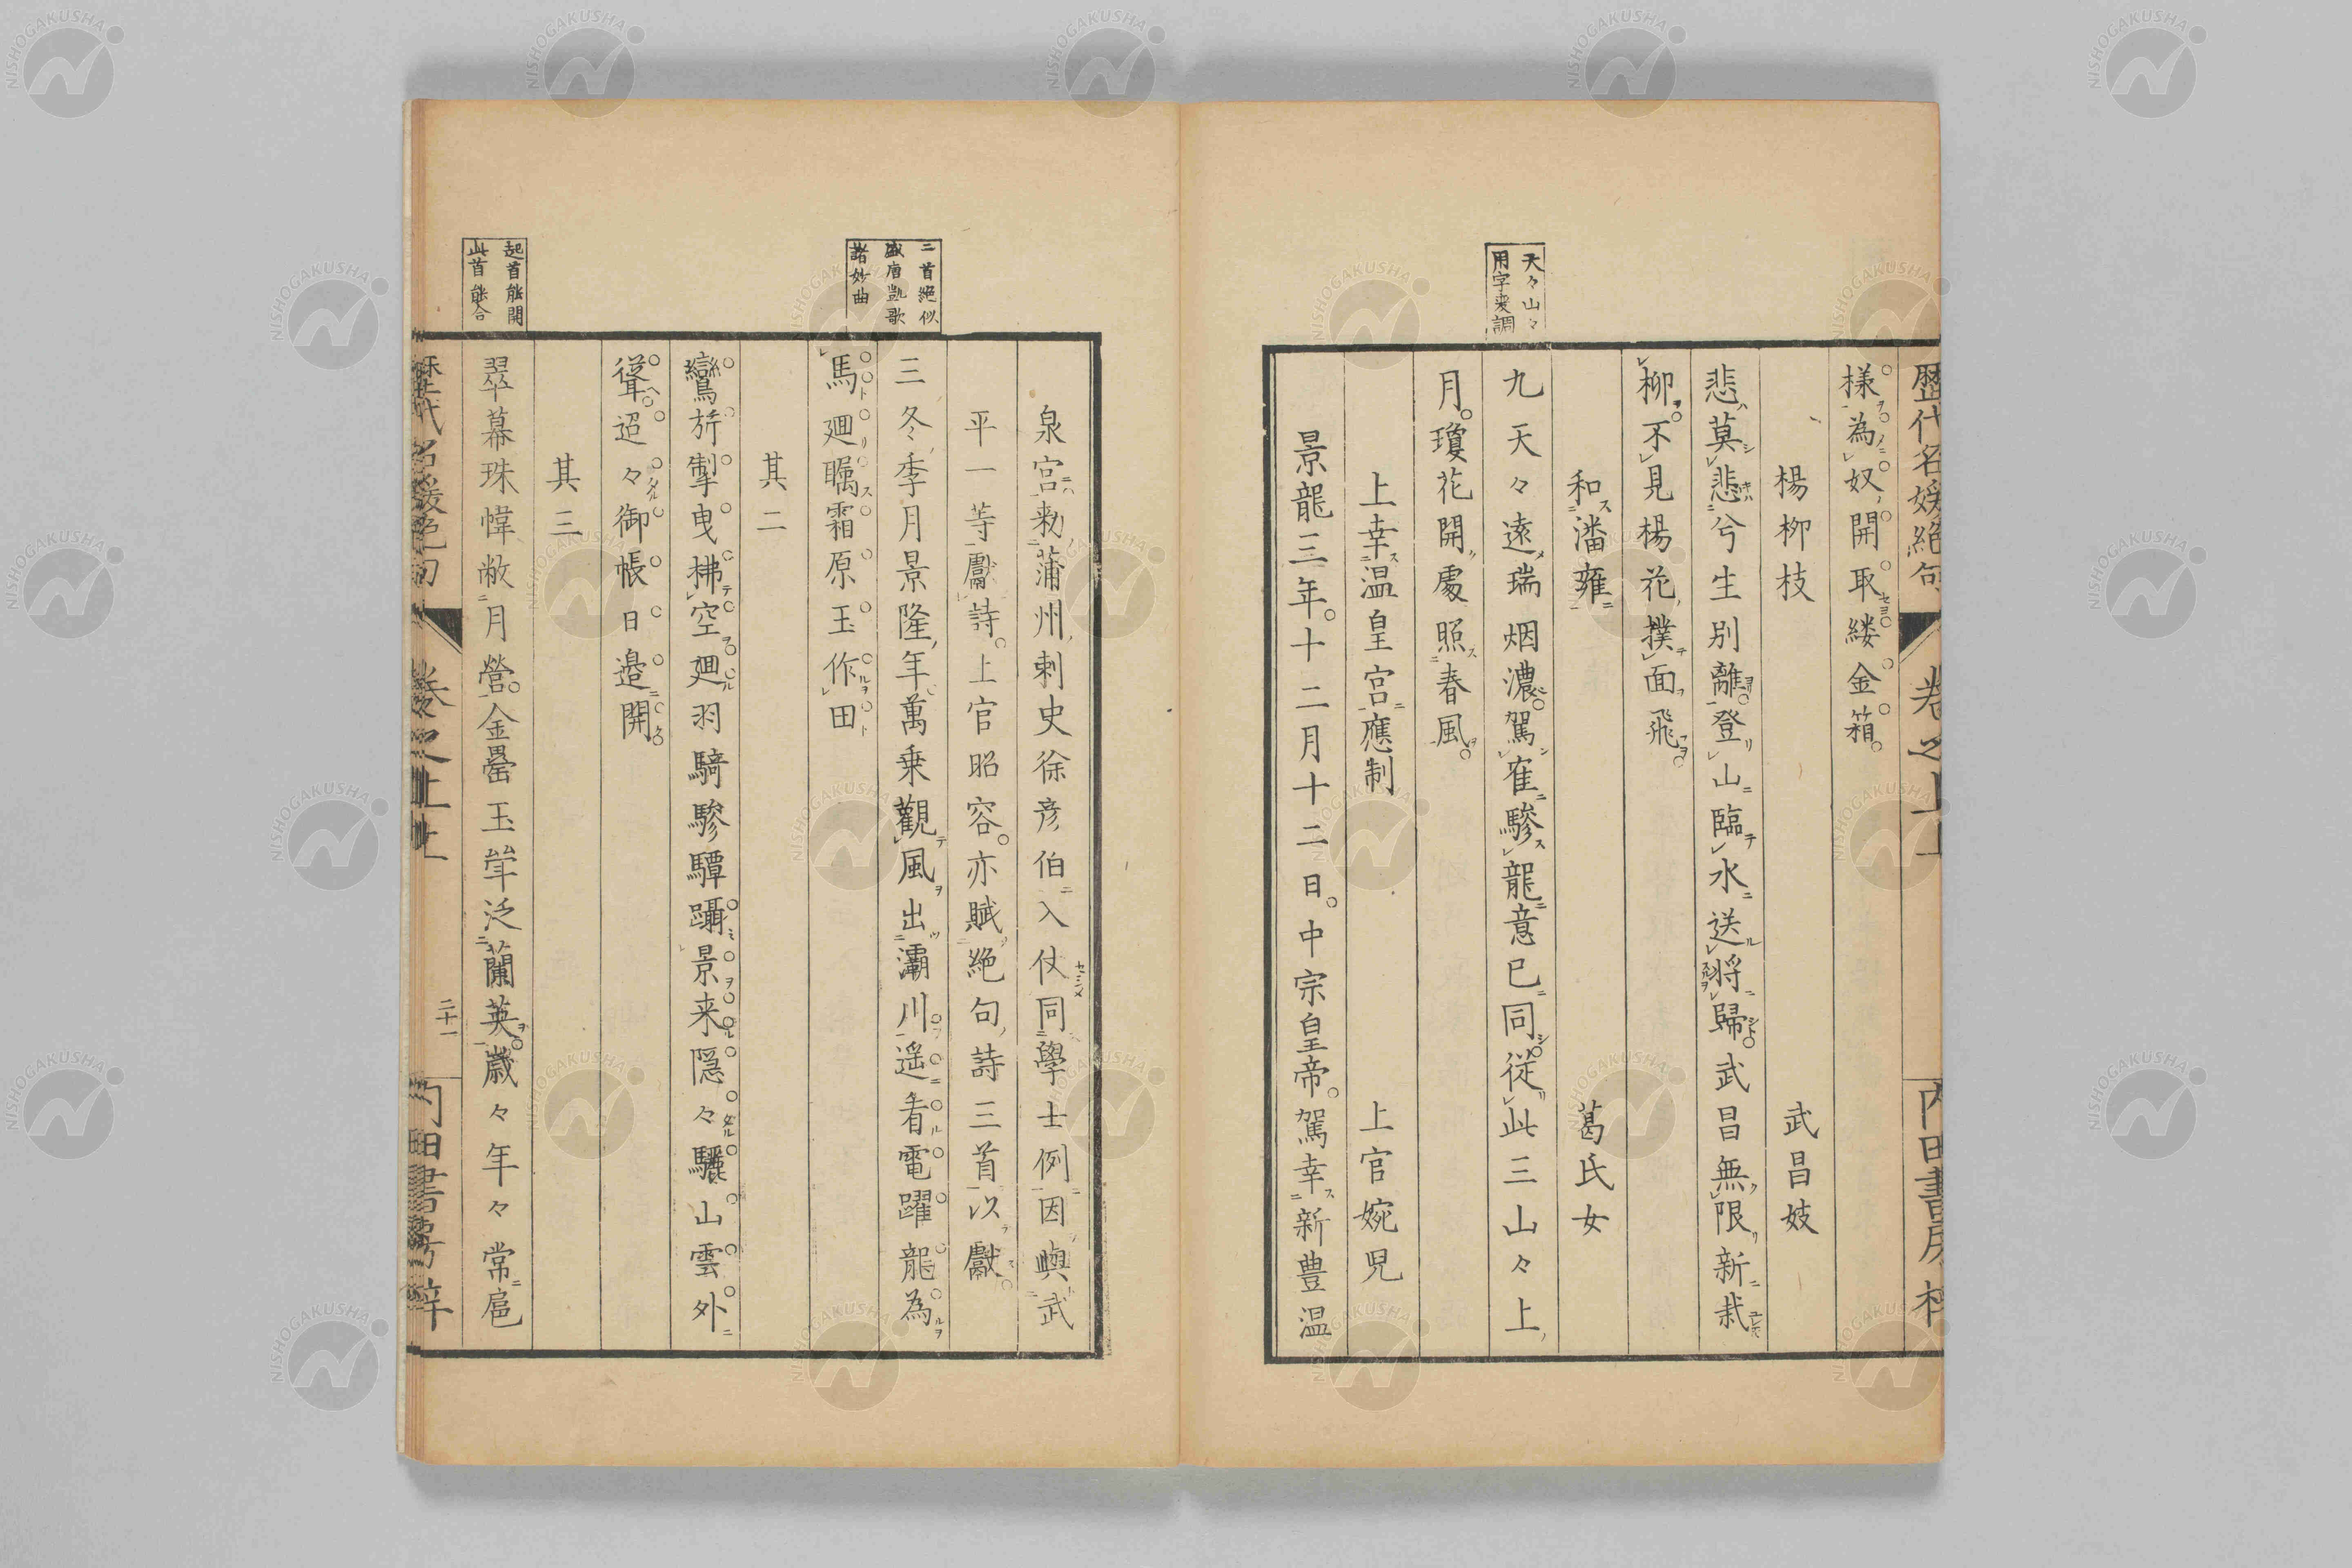 歴代名媛絶句 巻之上上 内田書房梓
様為奴開取縷金箱
楊柳枝 武昌妓
悲莫悲兮生別離登山臨水送将歸武昌無限新栽
柳不見楊花撲面飛
和潘雍 葛氏女
天々山々
用字爽調
九天々遠瑞烟濃駕隺驂龍意已同従此三山々上
月瓊花開處照春風
上幸温皇宮應制 上官婉児
景龍三年十二月十二日中宗皇帝駕幸新豊温
泉宮敕蒲州刺史徐彦伯入仗同學士例因與武
平一等獻詩上官昭容亦賦絶句詩三首以獻
二首絕似
盛唐凱歌
諸妙曲
三冬季月景隆年萬乗觀風出灞川遥看電躍龍為
馬廻矚霜原玉作田
其二
鸞旂掣曳拂空廻羽騎驂驔躡景来隠々驪山雲外
聳迢々御帳日邉開
其三
起首能開
此首能合
翠幕珠幃敝月營金罍玉斝泛蘭英歳々年々常扈
歴代名媛絶句 巻之上上 二十一 内田書房梓